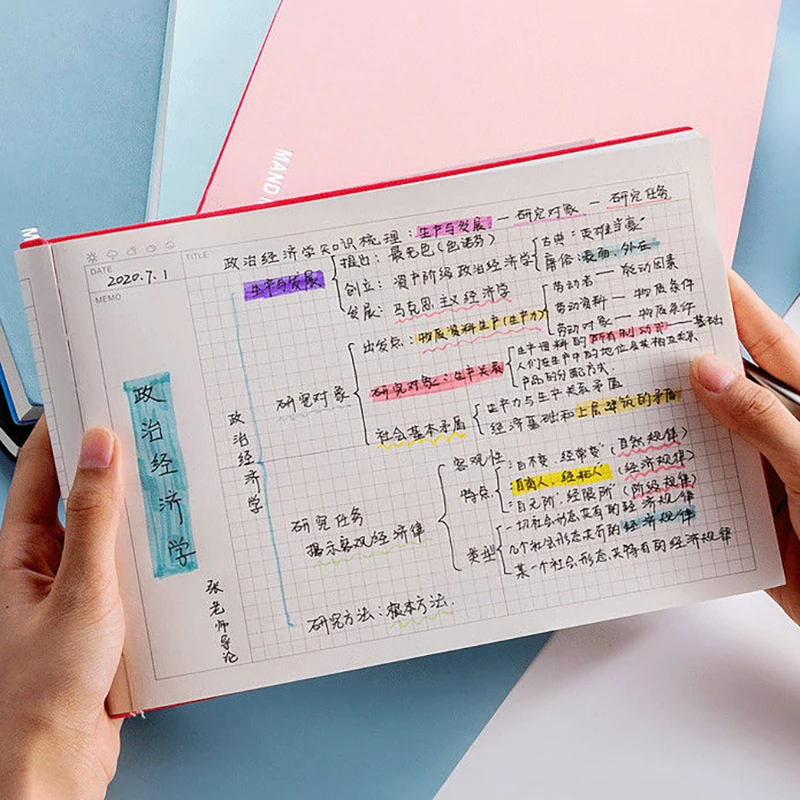 MAND
DATE
2020.7.1
MEMO
TITLE
政治经济学知识梳理：生产与发展 — 研究对象 — 研究任务
政治经济学
张老师导论
政治经济学
生产与发展
提出：
创立：资产阶级政治经济学
古典
庸俗：表面、外在
发展：马克思主义经济学
研究对象
出发点：物质资料生产（生产力）
劳动者 —
劳动资料 — 物质条件
劳动对象 — 物质条件
研究对象：生产关系
生产资料的所有制 — 基础
人们在生产中的地位及其相互关系
产品的分配方式.
社会基本矛盾
生产力与生产关系矛盾
经济基础和上层建筑的矛盾
研究任务
揭示客观经济律
客观性
特点
（自然规律）
（经济规律）
（阶级规律）
类型
一切社会形态共有的经济规律
几个社会形态共有的经济规律
某一个社会形态其特有的经济规律
研究方法：根本方法.